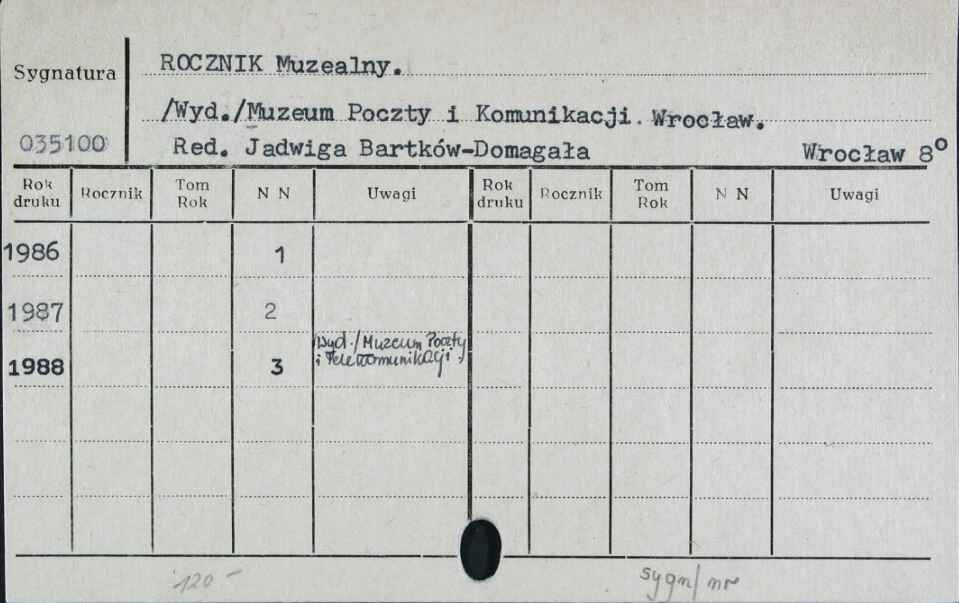 Sygnatura
ROCZNIK Muzealny.
/Wyd./Muzeum Poczty i Komunikacji. Wrocław.
035100
Red. Jadwiga Bartków-Domagała Wrocław 8°
Rok druku Rocznik Tom Rok N N Uwagi Rok druku Rocznik Tom Rok N N Uwagi
1986 1
1987 2
1988 3 /Wyd./Muzeum Poczty
i Telekomunikacji.
120 -
sygn/nr